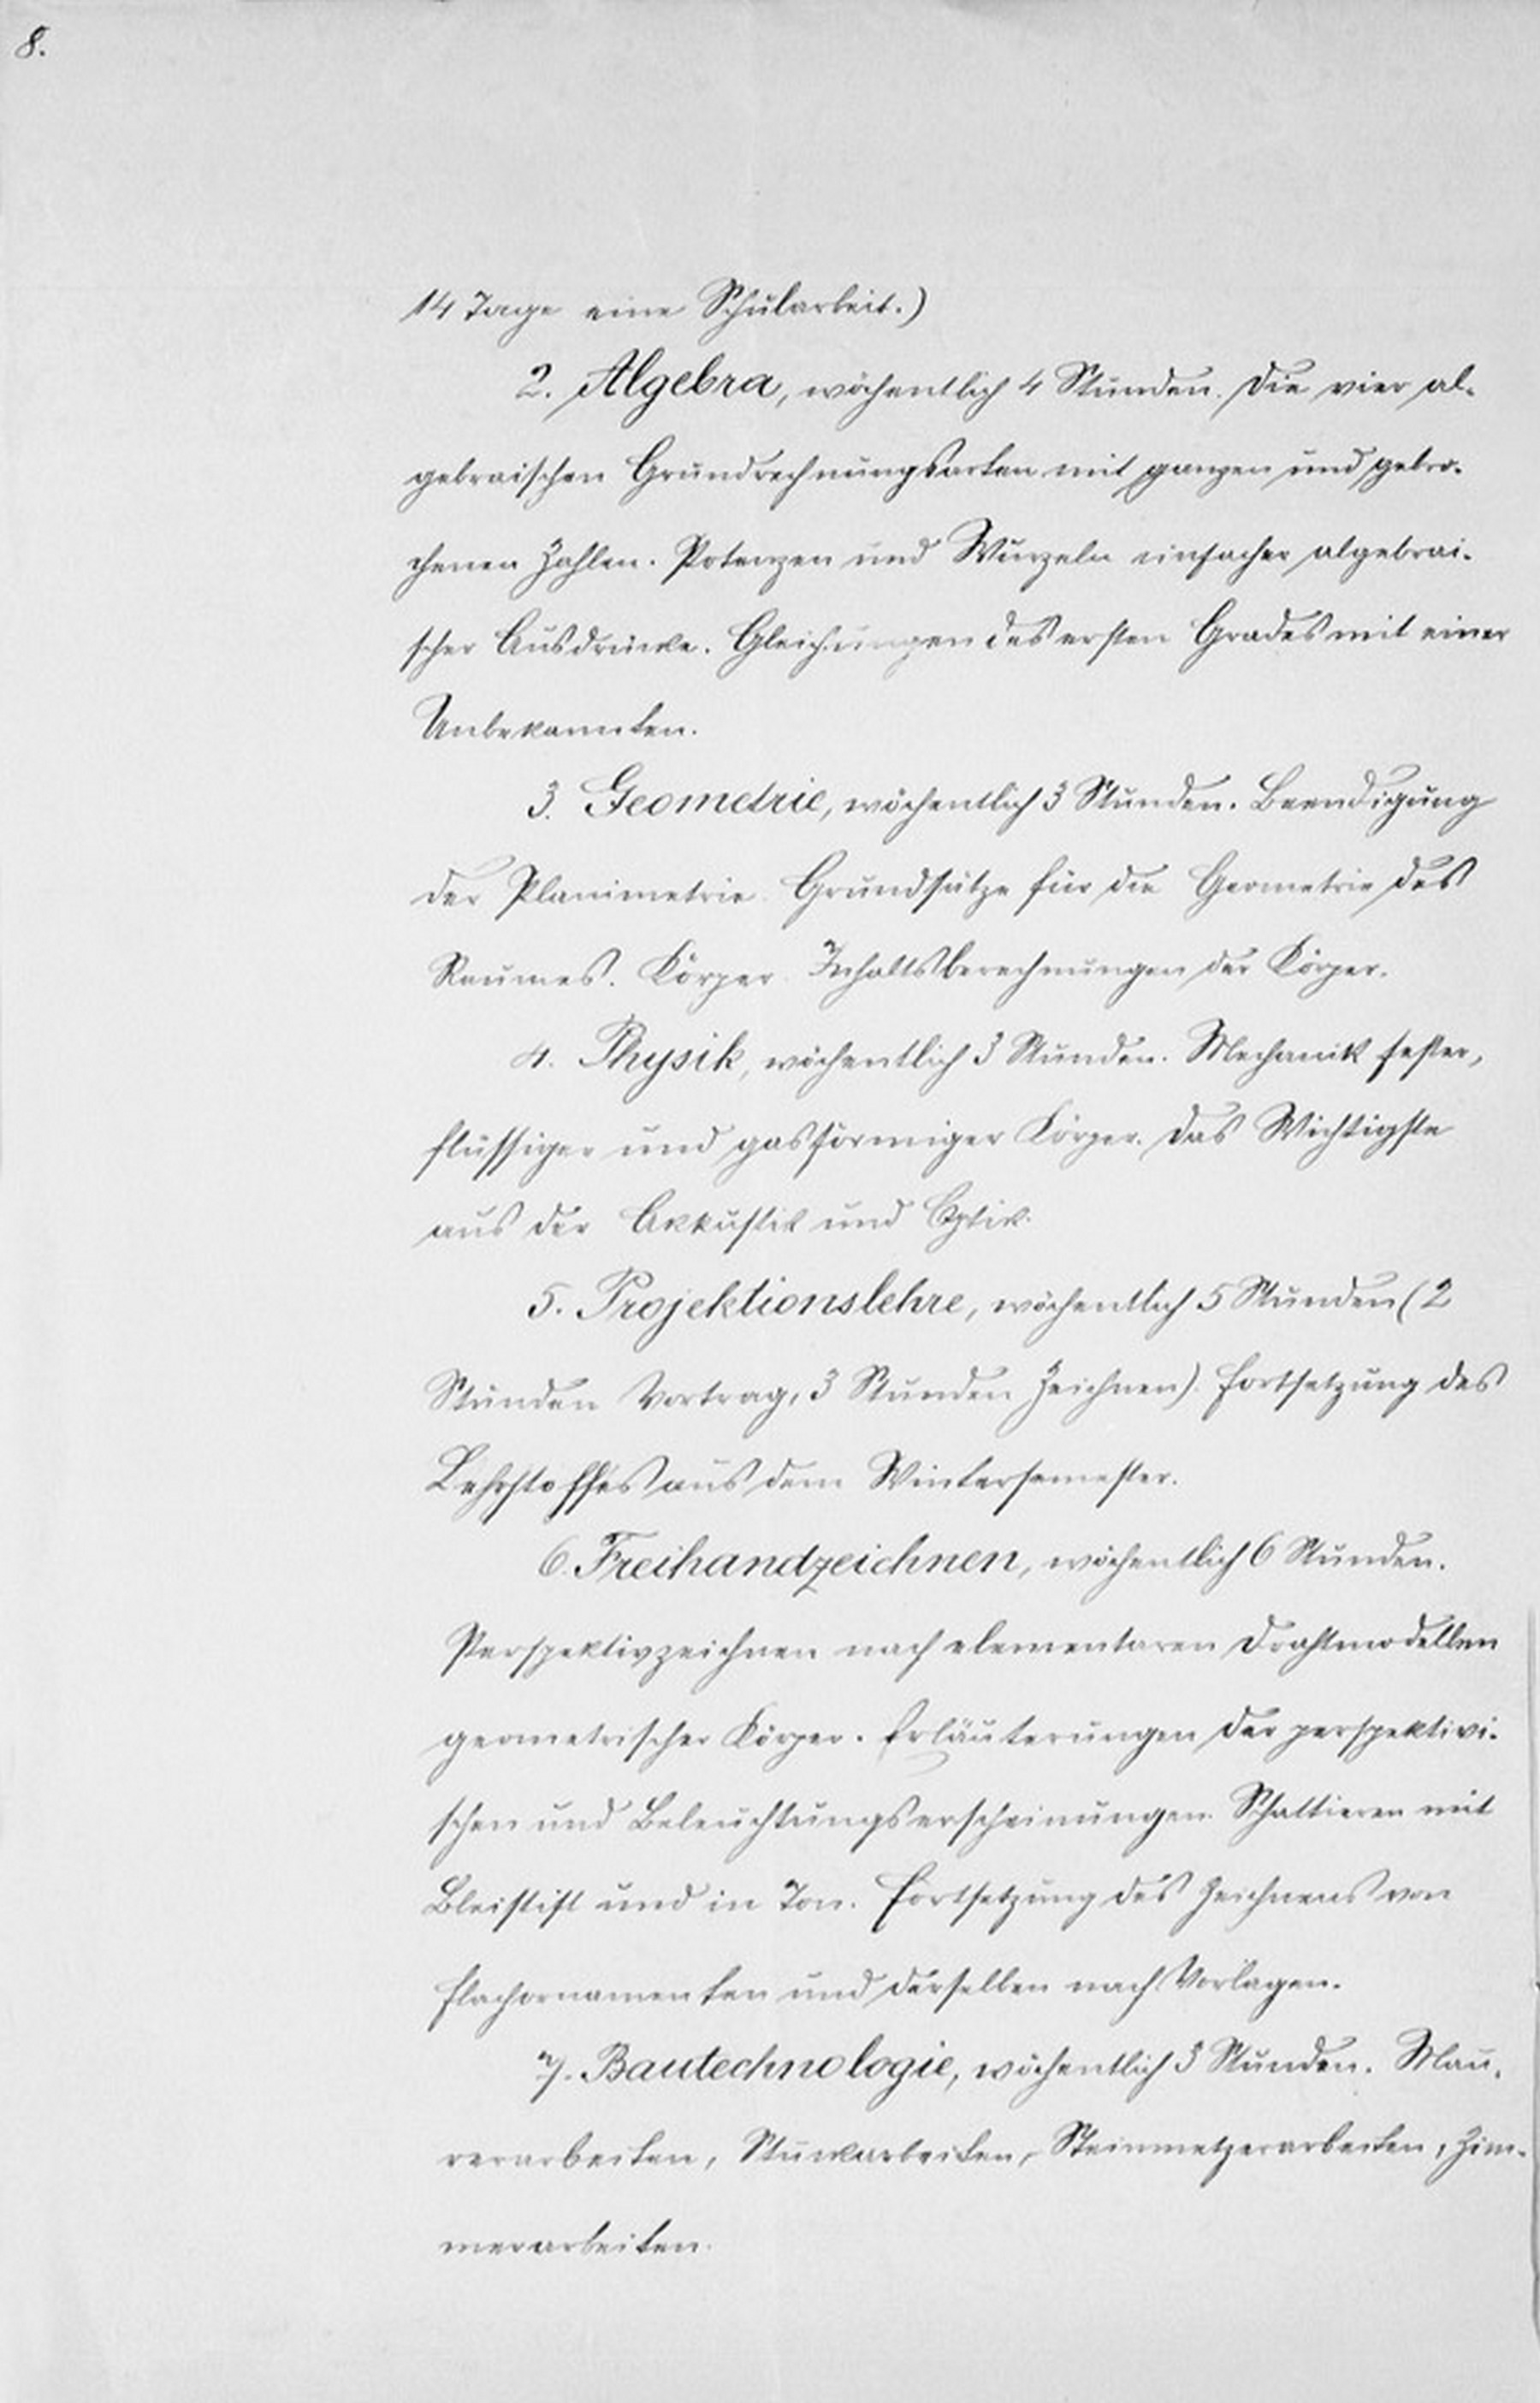 8.
14 Tage eine Schularbeit.)
2. Algebra, wöchentlich 4 Stunden. Die vier al-
gebraischen Grundrechnungsarten mit ganzen und gebro-
chenen Zahlen. Potenzen und Wurzeln einfacher algebrai-
scher Ausdrücke. Gleichungen des ersten Grades mit einer
Unbekannten.
3. Geometrie, wöchentlich 3 Stunden. Beendigung
der Planimetrie. Grundsätze für die Geometrie des
Raumes. Körper. Inhaltsberechnungen der Körper.
4. Physik, wöchentlich 3 Stunden. Mechanik fester,
flüssiger und gasförmiger Körper. Das Wichtigste
aus der Akkustik und Optik.
5. Projektionslehre, wöchentlich 5 Stunden (2
Stunden Vortrag, 3 Stunden Zeichnen). Fortsetzung des
Lehrstoffes aus dem Wintersemester.
6. Freihandzeichnen, wöchentlich 6 Stunden.
Perspektivzeichnen nach elementaren Drahtmodellen
geometrischer Körper. Erläuterungen der perspektivi-
schen und Beleuchtungserscheinungen. Schattieren mit
Bleistift und in Ton. Fortsetzung des Zeichnens von
Flachornamenten und derselben nach Vorlagen.
7. Bautechnologie, wöchentlich 3 Stunden. Mau-
rerarbeiten, Stuckarbeiten, Steinmetzerarbeiten, Zim-
merarbeiten.